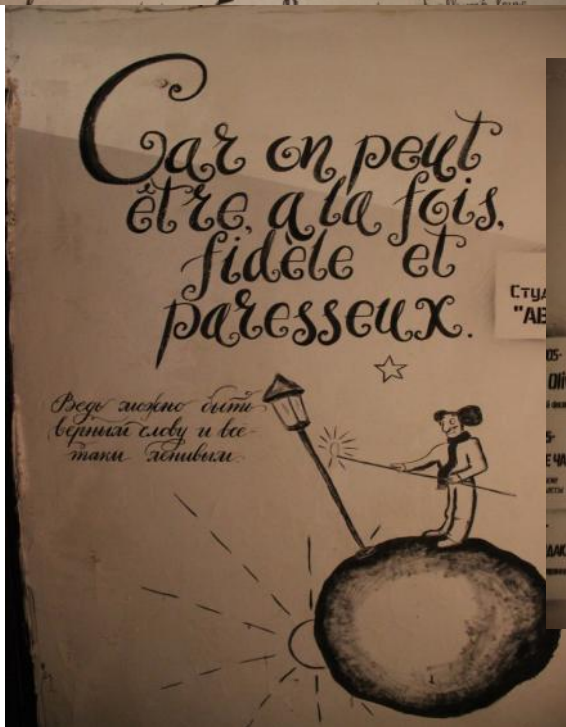 Car on peut
être, a la fois,
fidèle et
paresseux.
Ведь можно быть
верным слову и все-
таки ленивым.
"АВ